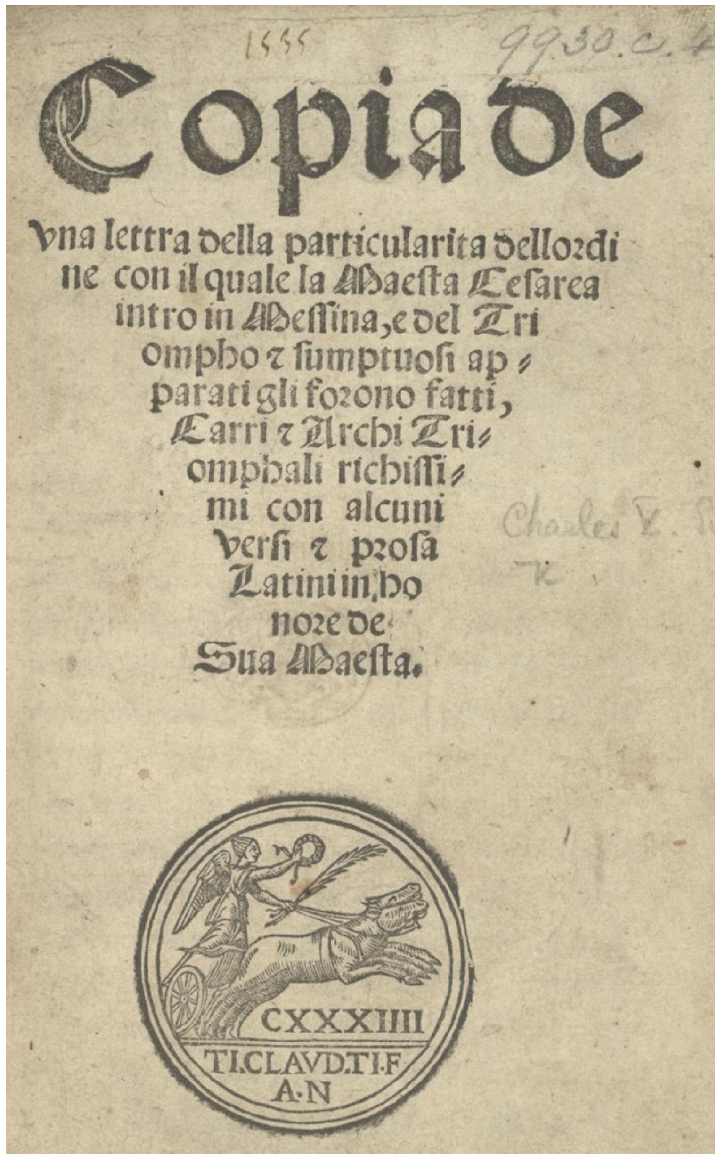 1535
9930.c.4
Copia de
vna lettra della particularita dellordi
ne con il quale la Maesta Cesarea
intro in Messina, e del Tri
ompho ⁊ sumptuosi ap⸗
parati gli forono fatti,
Carri ⁊ Archi Tri⸗
omphali richissi⸗
mi con alcuni
versi ⁊ prosa
Latini in, ho
nore de
Sua Maesta.
Charles V.
CXXXIIII
TI.CLAVD.TI.F
A.N